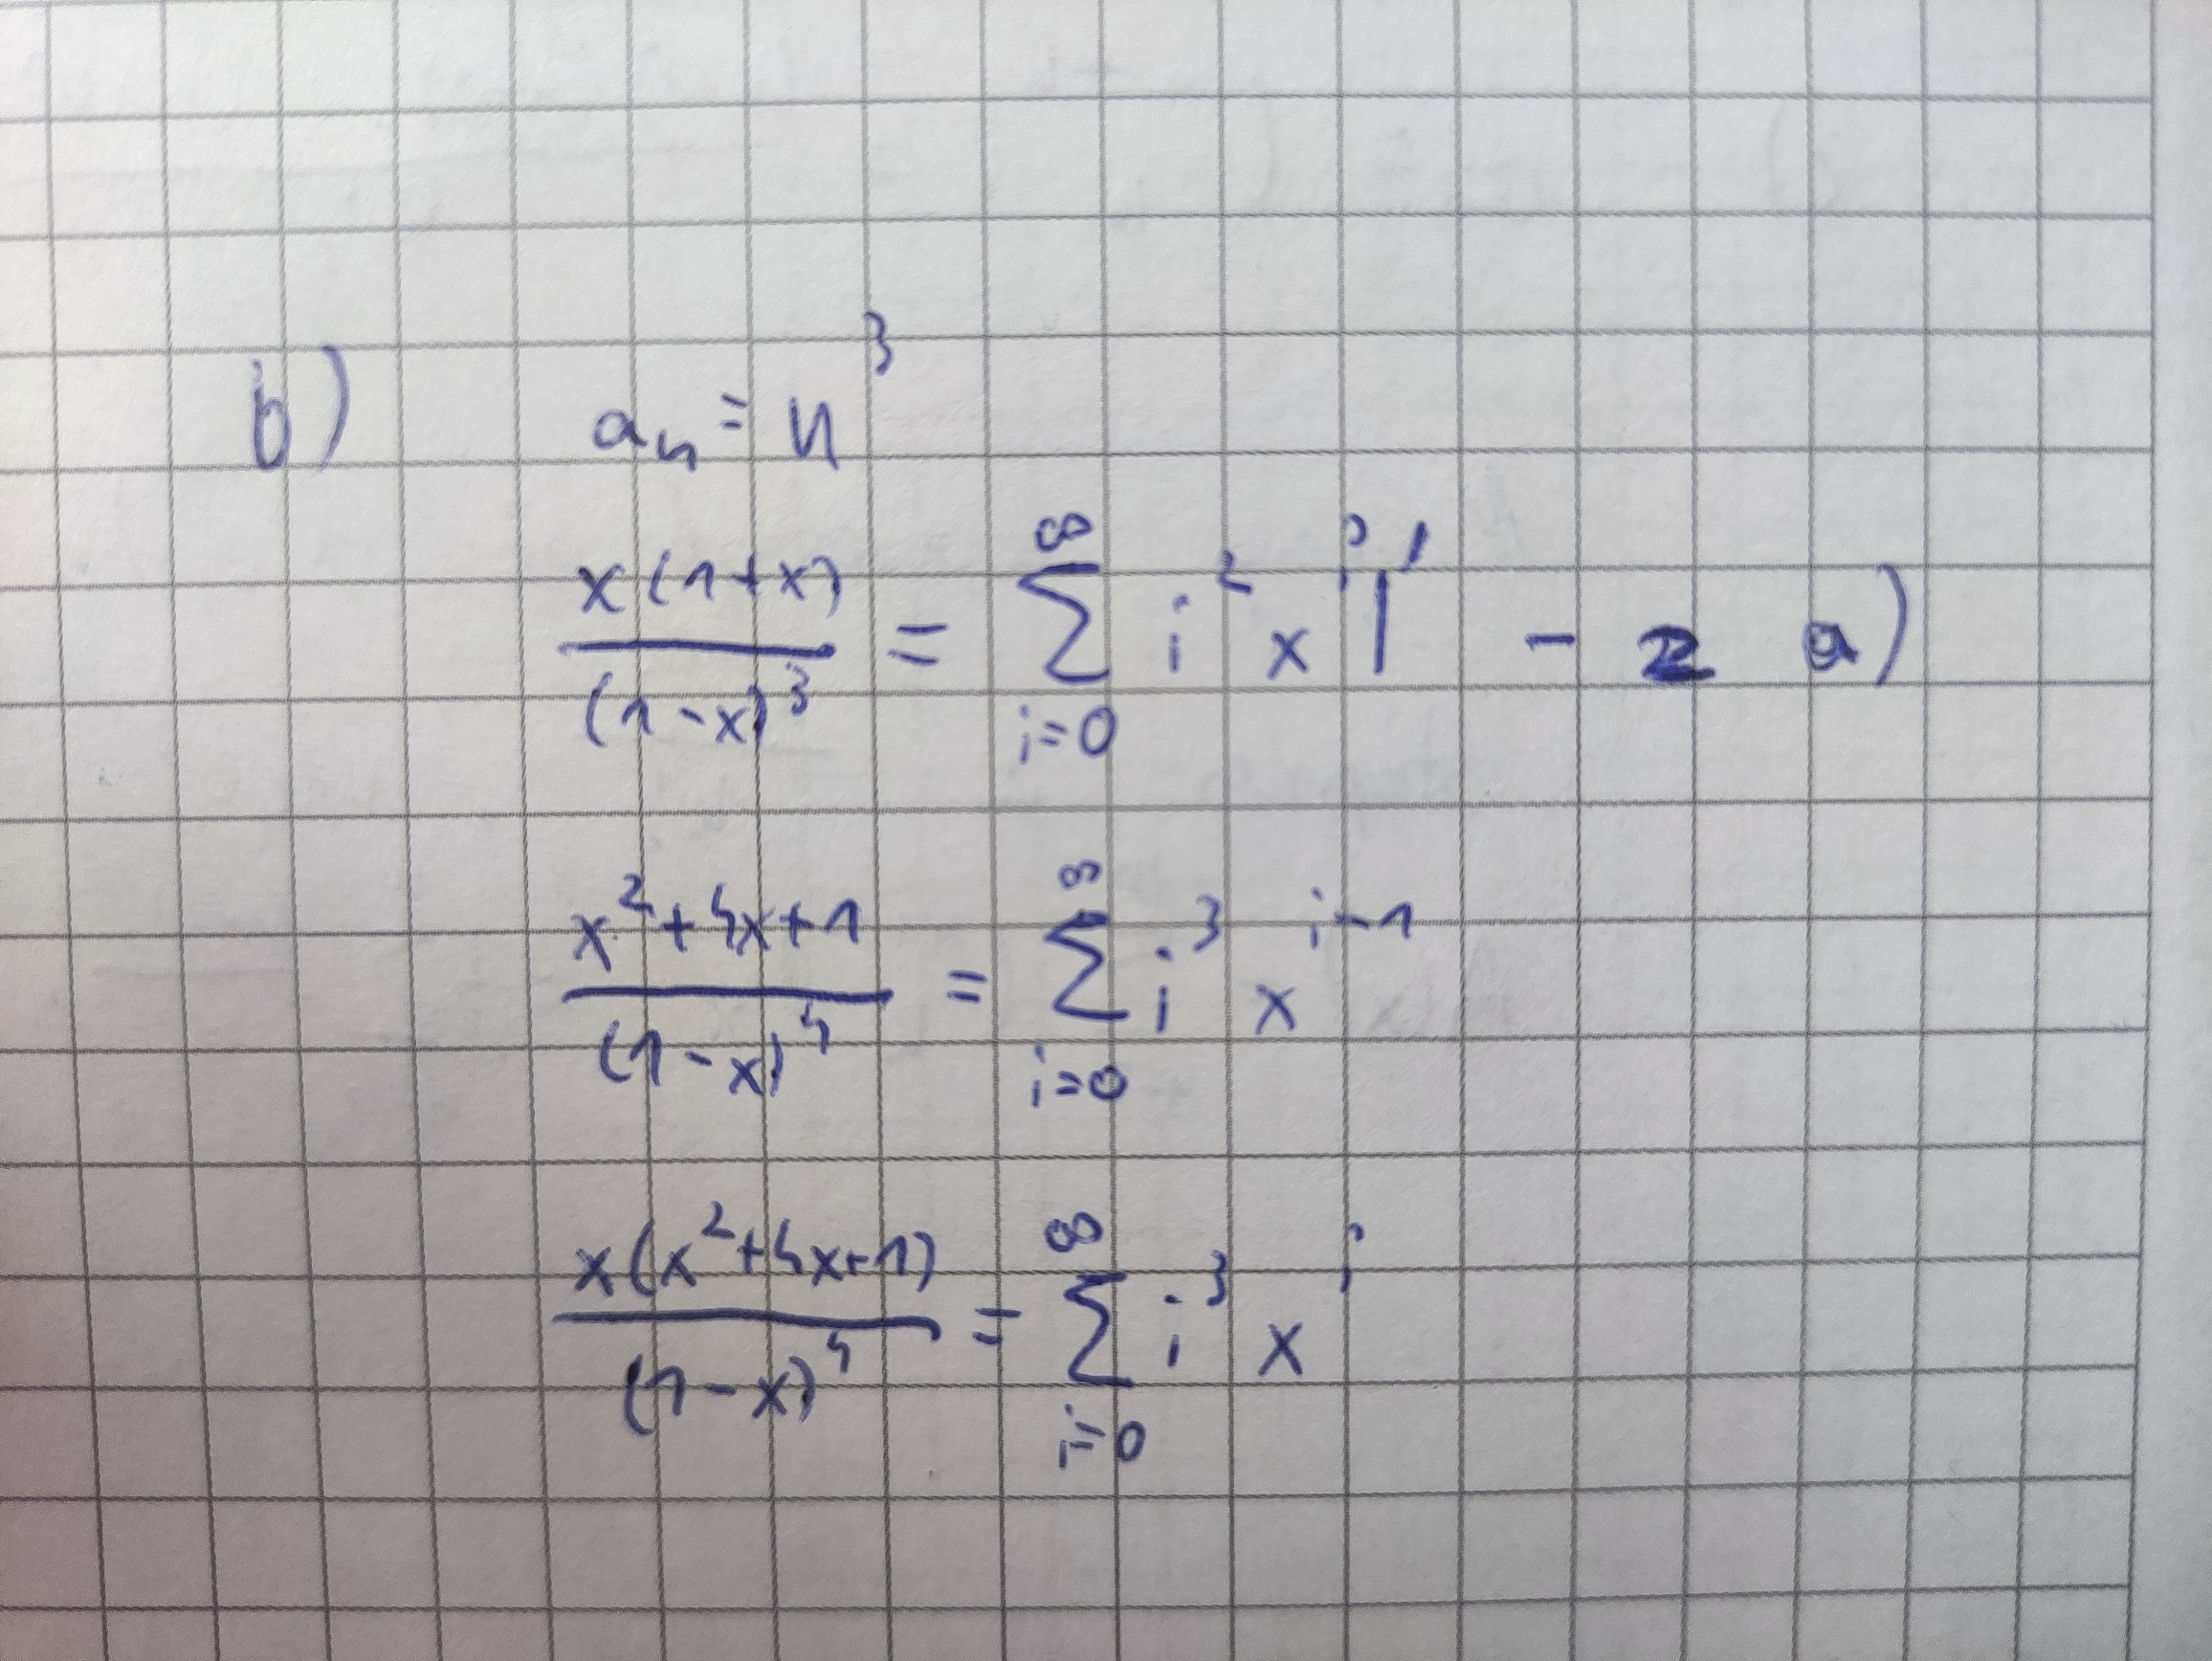 b) aₙ = n³
x(1+x)/(1-x)³ = ∑_{i=0}^{∞} i² x^i |' - z a)
(x²+4x+1)/(1-x)⁴ = ∑_{i=0}^{∞} i³ x^{i-1}
x(x²+4x+1)/(1-x)⁴ = ∑_{i=0}^{∞} i³ x^i